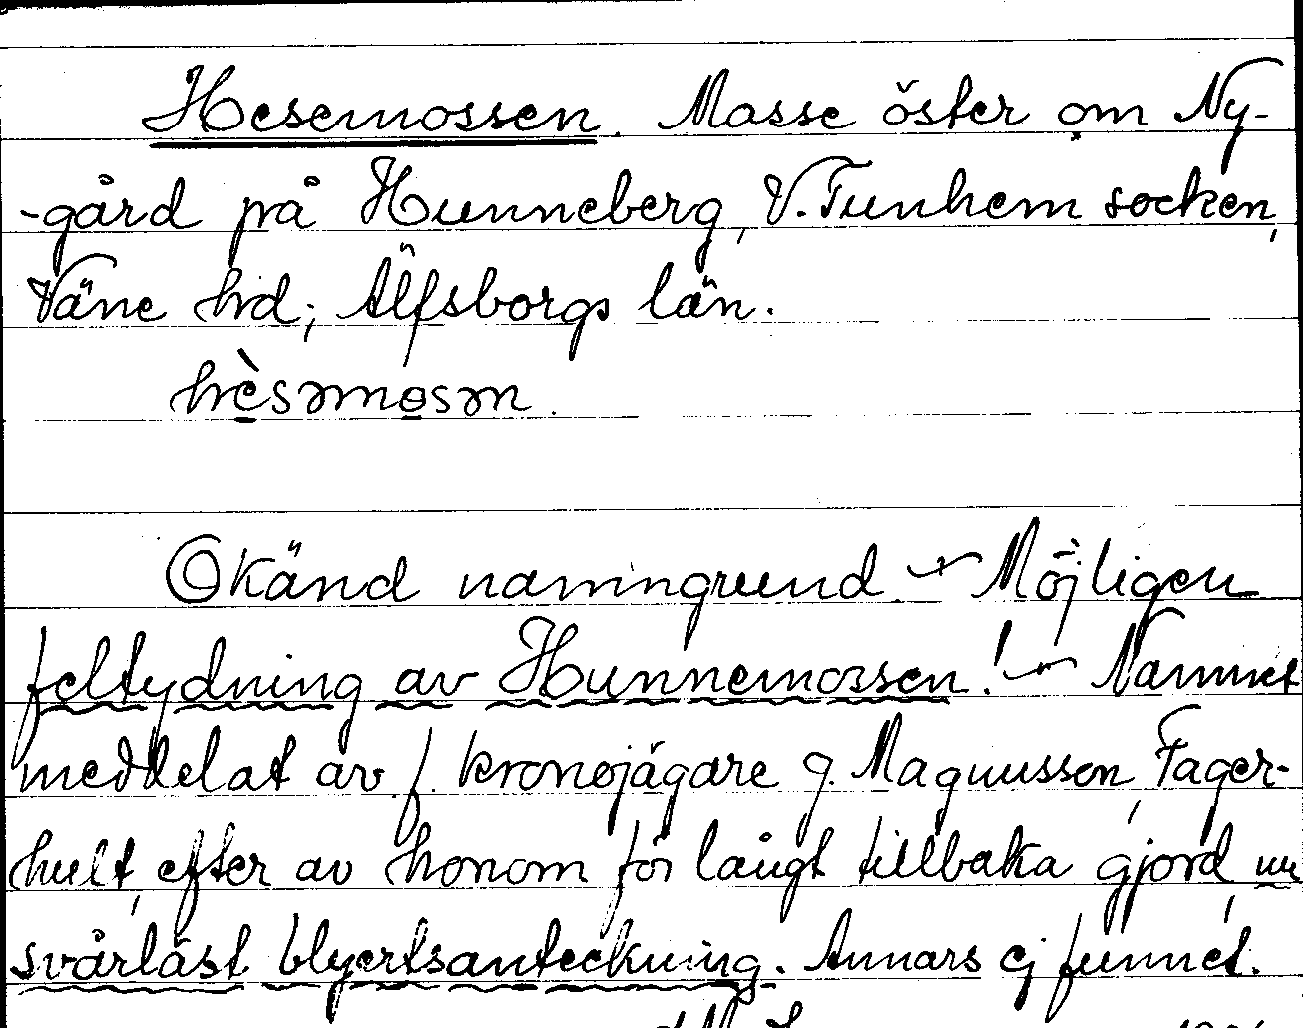 Hesemossen. Mosse öster om Ny-
-gård på Hunneberg, V. Tunhem socken,
Väne hd; Älfsborgs län.
hèsəmosən.
Okänd namngrund. - Möjligen
feltydning av Hunnemossen! - Namnet
meddelat av f. kronojägare J. Magnusson, Fager-
hult, efter av honom för långt tillbaka gjord, nu
svårläst blyertsanteckning. Annars ej funnet.